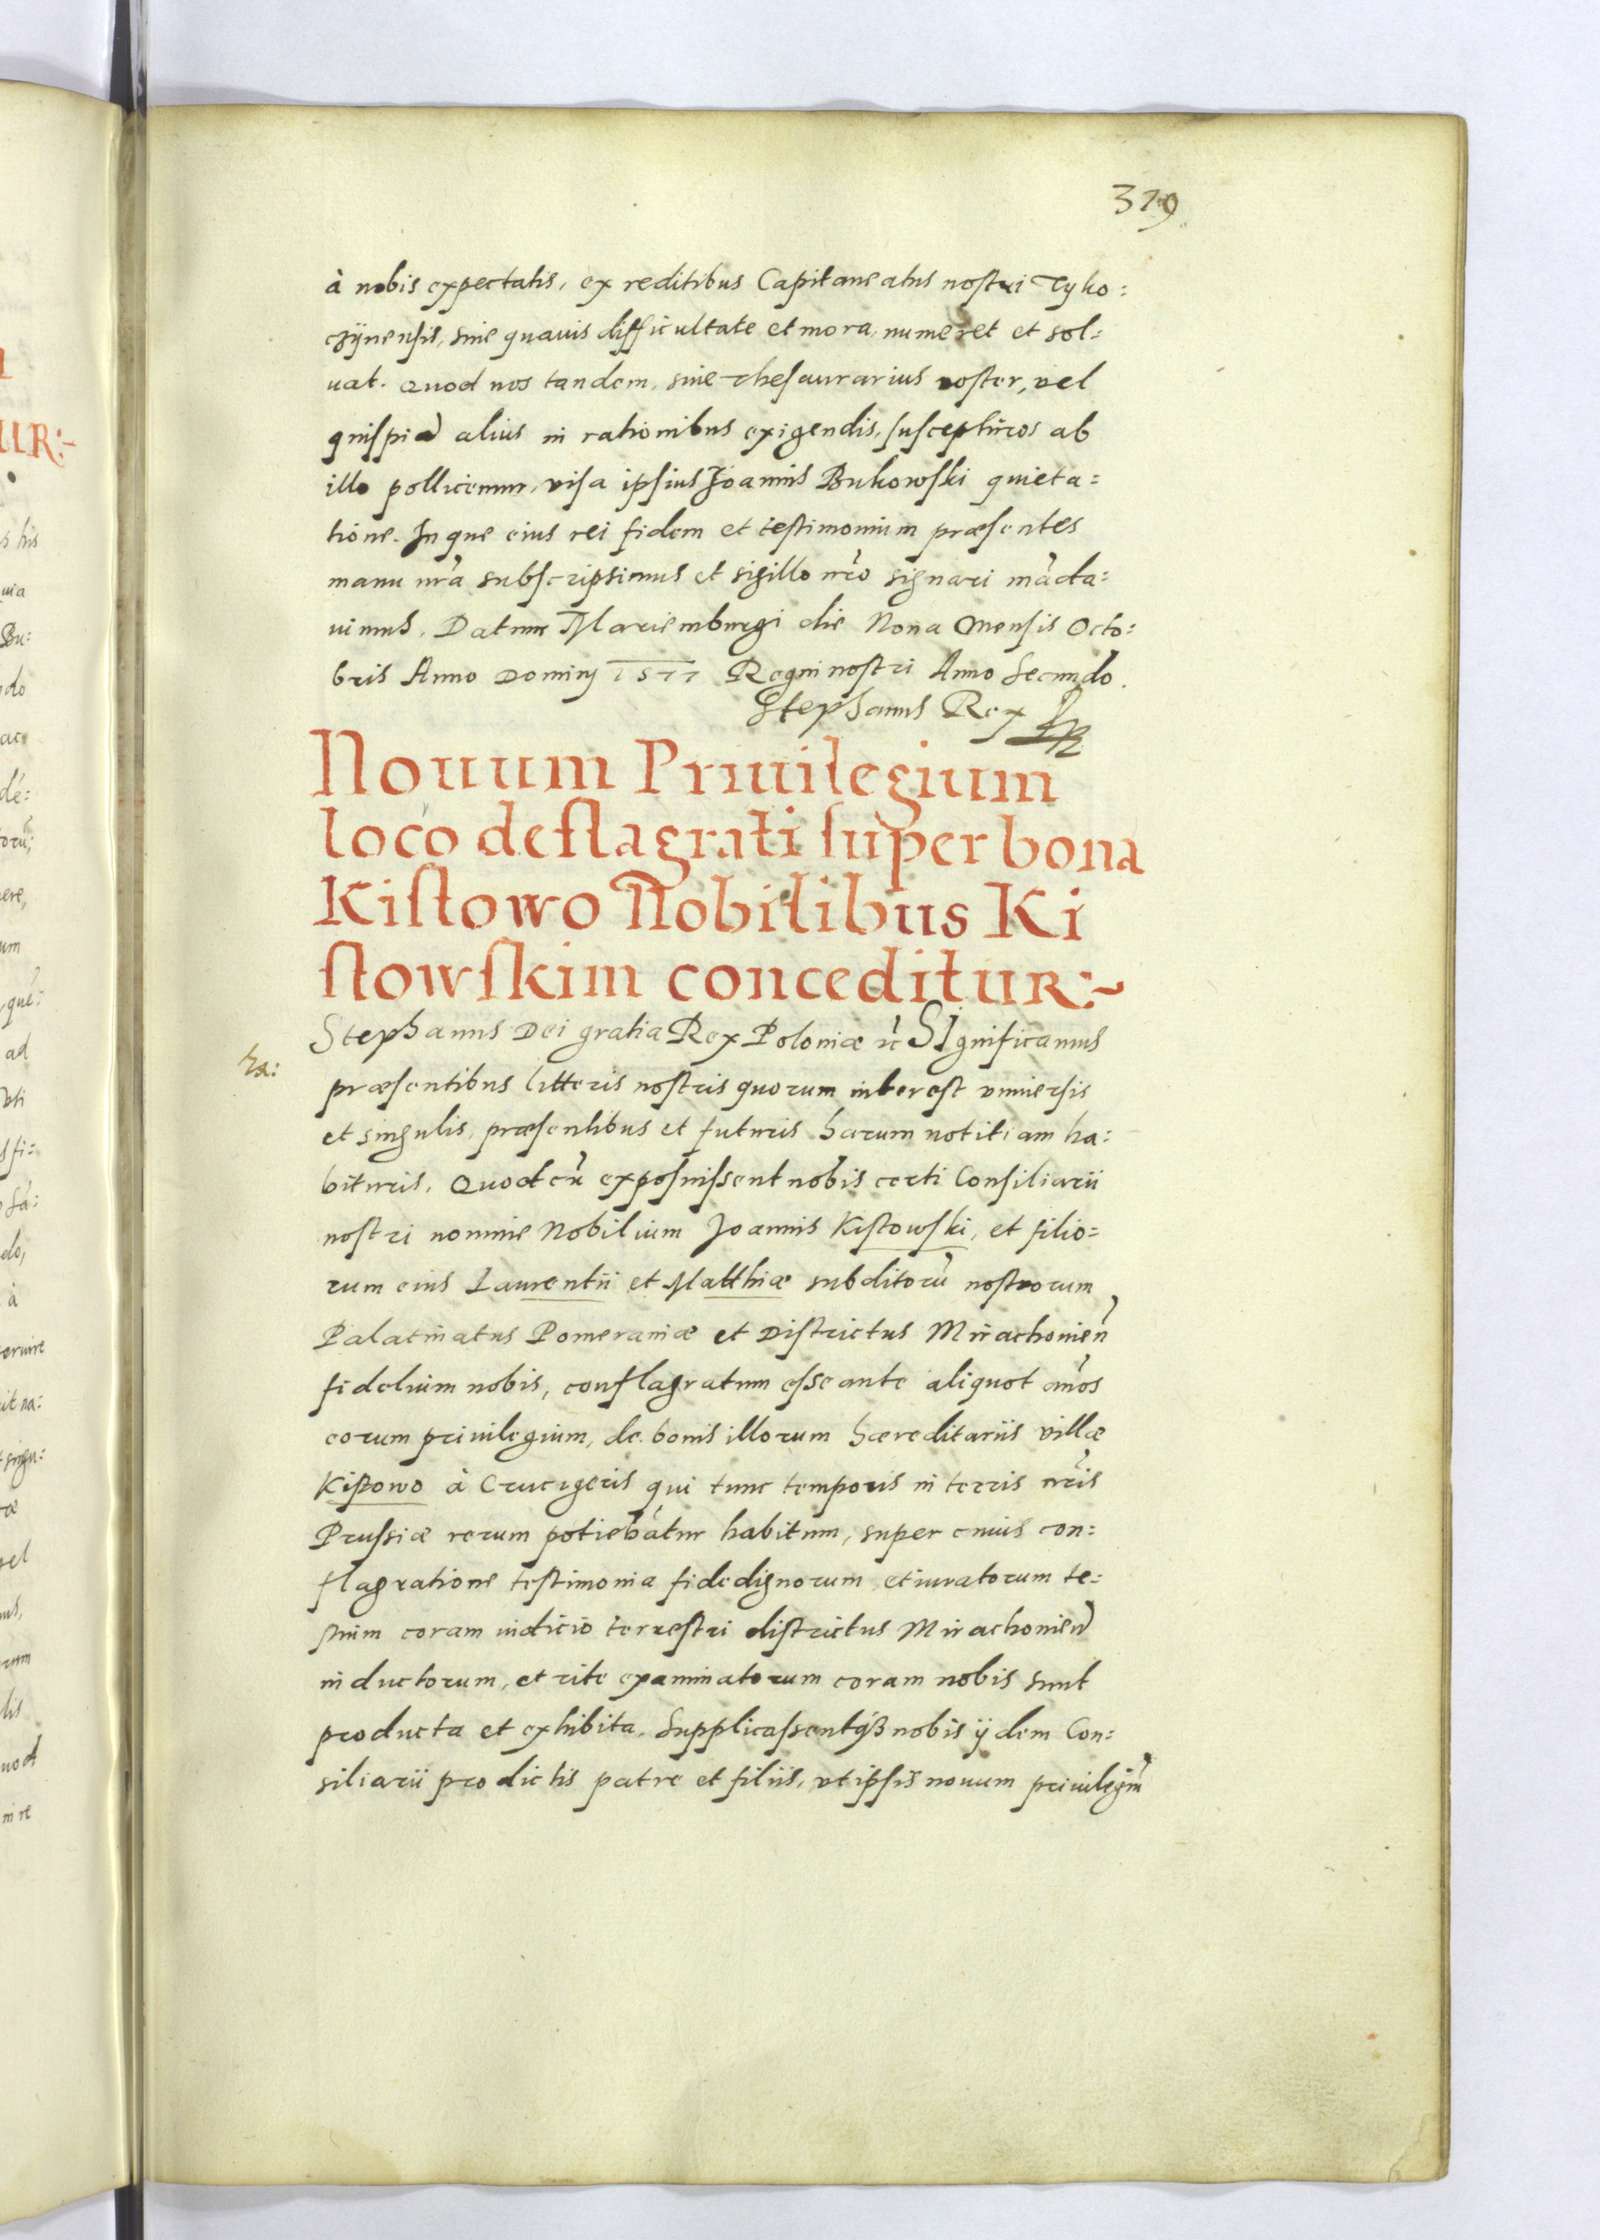 379
à nobis expectatis, ex reditibus Capitaneatus nostri Tyko:
czÿnensis, sine quauis difficultate et mora, numeret et sol:
uat. Quod nos tandem, siue Thesaurarius noster, vel
quispiã alius in rationibus exigendis, suscepturos ab
illo pollicemur, visa ipsius Joannis Bukowski quieta:
tione. In que eius rei fidem et testimonium præsentes
manu nrã subscripsimus et sigillo nrõ signari mãda:
uimus. Datum Mariemburgi die Nona Mensis Octo:
bris Anno Dominj 1577 Regni nostri Anno Secundo.
Stephanus Rex
Nouum Priuilegium
loco deflagrati super bona
Kistowo Nobilibus Ki
stowskim conceditur:~
Stephanus Dei gratia Rex Poloniæ ꝛc̃ SIgnificamus
præsentibus litteris nostris quorum interest vniuersis
et singulis, præsentibus et futuris harum notitiam ha:
bituris. Quod cũ exposuissent nobis certi Consiliarii
nostri nomine Nobilium Joannis Kistowski, et filio=
rum eius Laurentii et Matthiæ subditorũ nostrorum
Palatinatus Pomeraniæ et Districtus Mirachonieñ
fidelium nobis, conflagratum esse ante aliquot anõs
eorum priuilegium, de bonis illorum hæreditariis villæ
Kistowo à Crucigeris qui tunc temporis in terris nrĩs
Prussiæ rerum potiebatur habitum, super cuius con:
flagratione testimonia fidedignorum et iuratorum te:
stium coram iudicio terrestri districtus Mirachonieñ
inductorum, et rite examinatorum coram nobis sunt
producta et exhibita. Supplicassentqꝫ nobis ÿdem Con:
siliarii pro dictis patre et filiis, vt ipsis nouum priuilegiũm